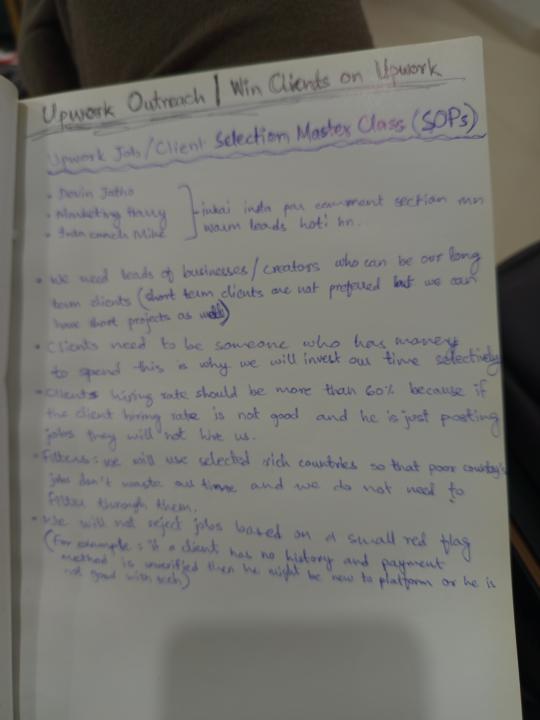 Upwork Outreach | Win Clients on Upwork
Upwork Job/Client Selection Master Class (SOPs)
• Devin Jatho
• Marketing Harry
• Mike
inkai insta par comment section mn
warm leads hoti hn.
• We need leads of businesses/creators who can be our long
term clients (short term clients are not preferred but we can
have short projects as well)
• Clients need to be someone who has money
to spend this is why we will invest our time selectively
• Clients hiring rate should be more than 60% because if
the client hiring rate is not good and he is just posting
jobs they will not hire us.
• Filters: we will use selected rich countries so that poor country's
jobs don't waste our time and we do not need to
filter through them.
• We will not reject jobs based on a small red flag
(For example: if a client has no history and payment
method is unverified then he might be new to platform or he is
not good with tech)